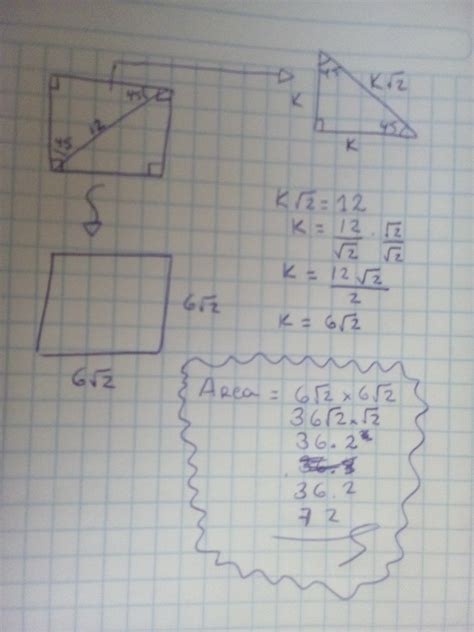 45
12
45
45
K√2
K
45
K
K√2 = 12
K = 12/√2 · √2/√2
K = 12√2/2
K = 6√2
6√2
6√2
Area = 6√2 × 6√2
36√2 × √2
36 . 2
36 . 2
72